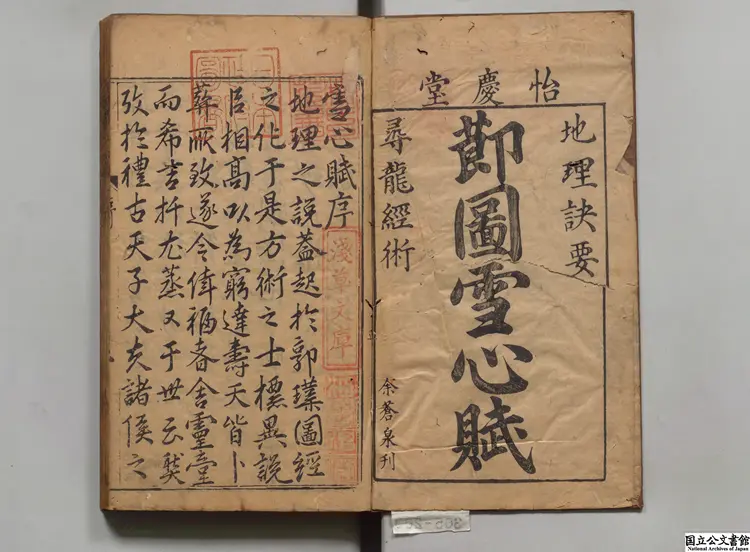 怡慶堂
地理訣要
節圖雪心賦
尋龍經術
余蒼泉刊
雪心賦序
地理之說蓋起於郭璞圖經
之化于是方術之士標異說
㠯相高以為窮達壽夭皆卜
葬所致遂令倖福者舍靈臺
而希吉扦尤蒸又于世云
攷於禮古天子大夫諸侯之
序
日本政府圖書
淺草文庫
国立公文書館
National Archives of Japan